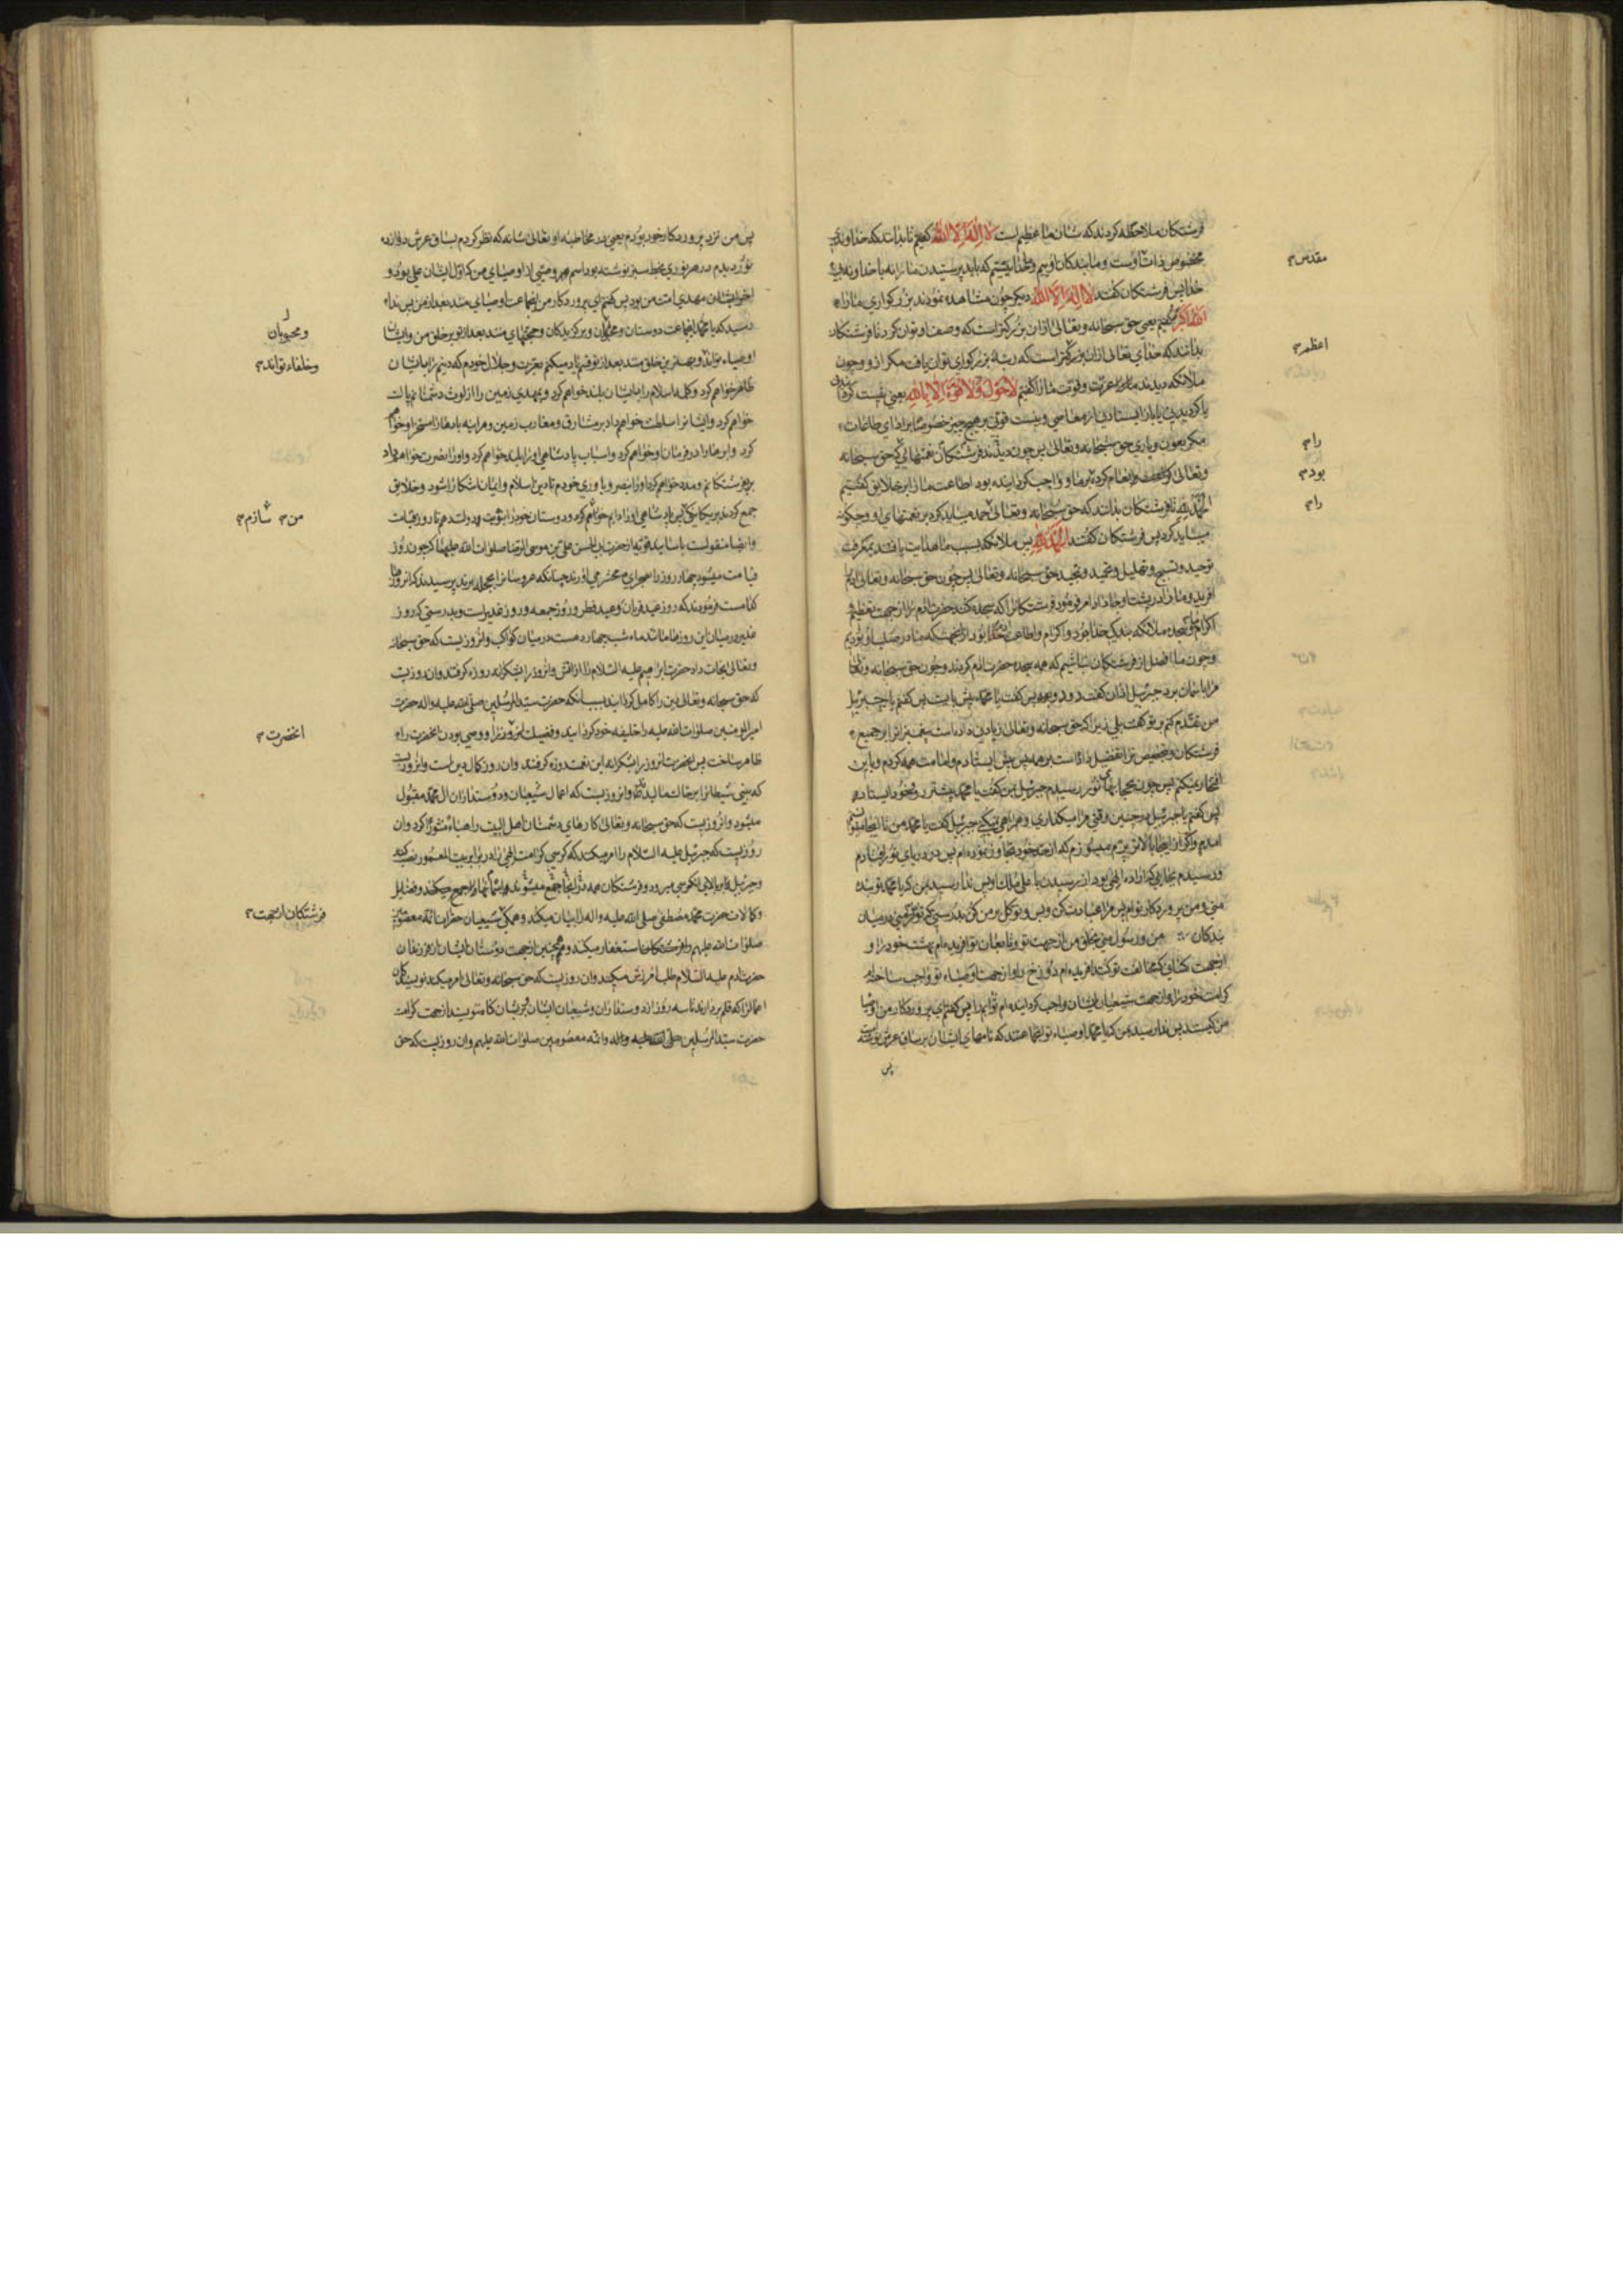 فرشتکان ملاحظه کردند که شان ما عظیم است لا اله الا الله کفتیم تا بدانند که خداوندی
مقدس
مخصوص ذات اوست و ما بندکان اوییم و خدا نیستیم که باید پرستیدن ما را نه با خداوند
خدا پس فرشتکان کفتند لا اله الا الله دیکر چون مشاهده نمودند بزرکواری ما را
الله اکبر کفتیم یعنی حق سبحانه و تعالی ازان بزرکتر است که وصف او توان کرد تا فرشتکان
اعظم
بدانند که خدای تعالی ازان بزرکتر است که رتبه بزرکواری توان یافت مکر ازو و چون
ملائکه دیدند عزت و قوت ما را کفتیم لا حول ولا قوة الا بالله یعنی نیست
یا باز ایستادنی از معاصی و نیست قوتی بر هیچ چیز خصوصا بر ادای طاعات
را
مکر بعون و یاری حق سبحانه و تعالی پس چون دیدند فرشتکان نعمتهایی که حق سبحانه
بود
و تعالی انعام کرده بر ما و واجب کردانیده بود اطاعت ما را بر خلایق کفتیم
را
الحمد لله تا فرشتکان بدانند که حق سبحانه و تعالی را حمد میباید کرد بر نعمتهای او و چکونه
میباید کرد پس فرشتکان کفتند الحمد لله پس ملائکه بسبب ما هدایت یافتند بمعرفت
توحید و تسبیح و تهلیل و تحمید و تمجید حق سبحانه و تعالی پس چون حق سبحانه و تعالی ادم
افرید و ما را در پشت او جا داد امر فرمود فرشتکانرا که سجده کنند حضرت ادم را از جهت تعظیم
اکرام سجده ملائکه بندکی خدا بود و اکرام و اطاعت بود از انجهت که ما در صلب او بودیم
و چون ما افضل از فرشتکان نباشیم که همه سجده حضرت ادم کردند و چون حق سبحانه و تعالی
مرا باسمان برد جبرئیل اذان کفت دو دو پس کفت یا محمد پیش بایست پس کفتم یا جبرئیل
من تقدم کنم بر تو کفت بلی زیرا که حق سبحانه و تعالی زیادتی داده است پیغمبرانرا بر جمیع
فرشتکان و بتخصیص ترا تفضیل داده است بر همه پس پیش ایستادم و امامت همه کردم و باین
افتخار نمیکنم پس چون بحجابهای نور رسیدم جبرئیل بمن کفت یا محمد پیشتر رو و خود ایستاد
پس کفتم یا جبرئیل در چنین وقتی مرا میکذاری و همراهی نمیکنی جبرئیل کفت یا محمد من تا اینجا
امدم و اکر از اینجا بالاتر پرم میسوزم که از حد خود تجاوز نموده‌ام پس در دریای نور افتادم
و رسیدم بجایی که اراده الهی بود از رسیدن باعلی ملک او پس ندا رسید بمن که یا محمد تو بنده
منی و من پروردکار توام پس مرا عبادت کن و بس و توکل بر من کن بدرستی که تو نور منی در میان
بندکان من و رسول منی بخلق من از جهت تو و تابعان تو افریده‌ام بهشت خود را و
از جهت کسانی که مخالفت تو کنند افریده‌ام دوزخ را و از جهت اوصیاء تو واجب ساخته‌ام
کرامت خود را و از جهت شیعیان ایشان واجب کردانیده‌ام ثواب را پس کفتم ای پروردکار من اوصیا
من کیستند پس ندا رسید بمن که یا محمد اوصیاء تو انجماعتند که نامهای ایشان بر ساق عرش نوشته
پس
پس من نزد پروردکار خود بودم یعنی در مخاطبه او تعالی شانه که نظر کردم بساق عرش دوازده
نور دیدم در هر نوری بخط سبز نوشته بود اسم هر وصیی از اوصیای من که اول ایشان علی بود و
اخر ایشان مهدی امت من بود پس کفتم ای پروردکار من انجماعت اوصیای منند بعد از من پس ندا
و محبوبان
رسید که یا محمد انجماعت دوستان و برکزیدکان و حجتهای منند بعد از تو بر خلق من و ایشان
و خلفاء تواند
اوصیاء تواند و بهترین خلق منند بعد از تو قسم یاد میکنم بعزت و جلال خودم که دینم را بایشان
ظاهر خواهم کرد و کلمه اسلام را بایشان بلند خواهم کرد و بمهدی زمین را از لوث دشمنانم پاک
خواهم کرد و ایشانرا سلطنت خواهم داد بر مشارق و مغارب زمین و هراینه بادها را مسخر او خواهم
کرد و ابرها را در فرمان او خواهم کرد و اسباب پادشاهی او را بلند خواهم کرد و او را نصرت خواهم داد
بر فرشتکانم و مدد خواهم کرد او را بنصر و یاوری خودم تا دین اسلام و ایمان اشکارا شود و خلایق
من سازم
جمع کردند بر یکانکی من پس پادشاهی او را دایم خواهم کرد و دوستان خود را بنوبت دولت دهم تا روز قیامت
و ایضا منقولست باسانید قویه از حضرت ابی الحسن علی بن موسی الرضا صلوات الله علیهما که چون روز
قیامت میشود چهار روز را بصحرای محشر می اورند چنانکه عروسانرا بحجله برند پرسیدند که انروزها
کدامست فرمودند که روز عید قربان و عید فطر و روز جمعه و روز غدیر است و بدرستی که روز
غدیر در میان این روزها مانند ماه شب چهاردهست در میان کواکب و انروزیست که حق سبحانه
و تعالی نجات داد حضرت ابراهیم علیه السلام را از اتش و انروز را بشکرانه روزه کرفتند و ان روزیست
که حق سبحانه و تعالی دین را کامل کردانید بسبب انکه حضرت سید المرسلین صلی الله علیه واله حضرت
انحضرت
امیر المومنین صلوات الله علیه را خلیفه خود کردانید و فضیلت انروز را و وصی بودن انحضرت را
ظاهر ساخت پس انحضرت انروز را بشکرانه این نعمت روزه کرفتند و ان روز کمال دین است و انروزیست
که بینی شیطانرا بر خاک مالیدند و انروزیست که اعمال شیعیان و دوستداران ال محمد مقبول
میشود و انروزیست که حق سبحانه و تعالی کارهای دشمنان اهل البیت را هباء منثورا کرد و ان
روزیست که جبرئیل علیه السلام را امر میکند که کرسی کرامت الهی را در برابر بیت المعمور نصب کند
و جبرئیل بر بالای انکرسی میرود و فرشتکان همه در انجا جمع میشوند و فضایل
فرشتکان ازجهت
و کمالات حضرت محمد مصطفی صلی الله علیه واله را بیان میکند و همکی شیعیان حضرات ائمه معصومین
صلوات الله علیهم را استغفار میکنند و همچنین از جهت دوستان ایشان از فرزندان
حضرت ادم علیه السلام طلب امرزش میکنند و ان روزیست که حق سبحانه و تعالی امر میکند نویسندکان
اعمالرا که قلم بردارند تا سه روز از دوستداران و شیعیان ایشان و بر ایشان کناه ننویسند از جهت کرامت
حضرت سید المرسلین صلی الله علیه واله و ائمه معصومین صلوات الله علیهم و ان روزیست که حق